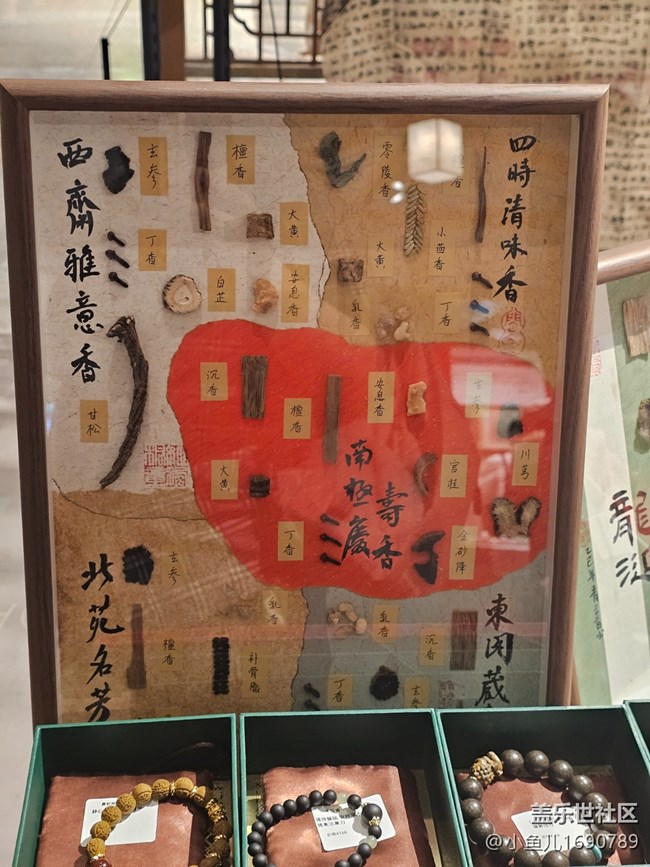 西齋雅意香
玄参
檀香
丁香
大黄
白芷
安息香
甘松
四時清味香
零陵香
小茴香
大黄
乳香
丁香
南極慶壽香
沉香
檀香
安息香
玄参
大黄
官桂
川芎
丁香
金砂降
北苑名芳
玄参
檀香
乳香
补骨脂
東閣藏
乳香
沉香
丁香
玄参
盖乐世社区
@小鱼儿1690789